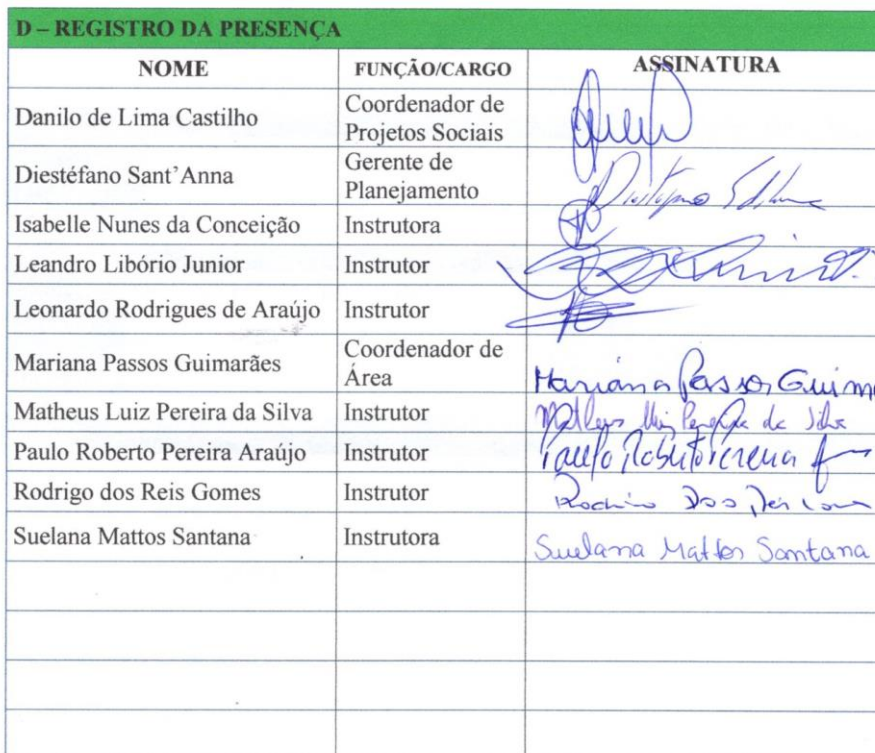 D – REGISTRO DA PRESENÇA
NOME FUNÇÃO/CARGO ASSINATURA
Danilo de Lima Castilho Coordenador de
Projetos Sociais
Diestéfano Sant'Anna Gerente de
Planejamento
Isabelle Nunes da Conceição Instrutora
Leandro Libório Junior Instrutor
Leonardo Rodrigues de Araújo Instrutor
Mariana Passos Guimarães Coordenador de
Área Mariana Passos Guima
Matheus Luiz Pereira da Silva Instrutor Matheus Luiz Pereira da Silva
Paulo Roberto Pereira Araújo Instrutor Paulo Roberto Pereira
Rodrigo dos Reis Gomes Instrutor Rodrigo Dos Reis
Suelana Mattos Santana Instrutora Suelana Mattos Santana